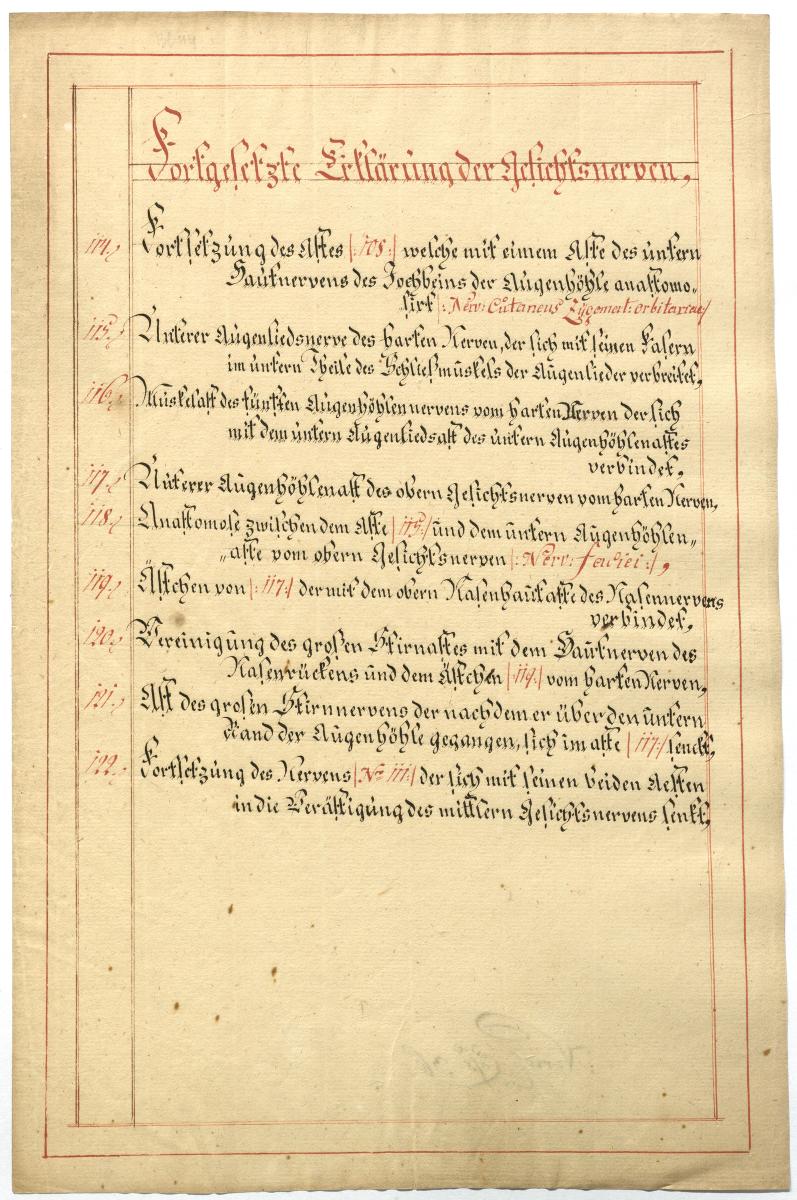 Fortgesetzte Erklärung der Gesichtsnerven,
114.) Fortsetzung des Astes |:108:| welche mit einem Aste des untern
Hautnervens des Jochbeins der Augenhöhle anastomo-
sirt |: Nerv: Cutaneus Zygomat: orbitariae /
115.) Unterer Augenliedsnerve des harten Nerven, der sich mit seinen Fasern
im untern Theile des Schließmuskels der Augenlieder verbreitet,
116.) Muskelast des fünften Augenhöhlennervens vom harten Nerven der sich
mit dem untern Augenliedsast des untern Augenhöhlenastes
verbindet,
117.) Unterer Augenhöhlenast des obern Gesichtsnerven vom harten Nerven,
118.) Anastomose zwischen dem Aste |115:| und dem untern Augenhöhlen„
„aste vom obern Gesichtsnerven |: Nerv: faciei :|,
119.) Ästchen von |:117:| der mit dem obern Nasenhautaste des Nasennervens
verbindet,
120.) Vereinigung des großen Stirnastes mit dem Hautnerven des
Nasenrückens und dem Ästchen |119.| vom harten Nerven,
121.) Ast des großen Stirnnervens der nachdem er über den untern
Rand der Augenhöhle gegangen, sich im aste |117:| senckt,
122.) Fortsetzung des Nervens |: No 111:| der sich mit seinen beiden Aesten
in die Verästigung des mittlern Gesichtsnervens senkt,